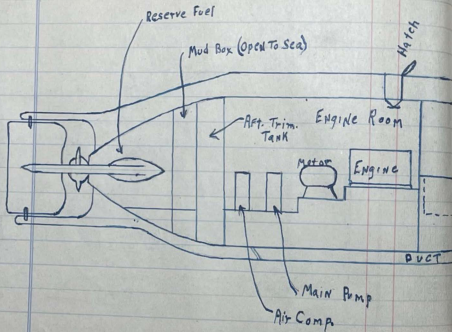 Reserve Fuel
Mud Box (Open To Sea)
Hatch
Aft. Trim.
Tank
Engine Room
Motor
Engine
Duct
Main Pump
Air Comp.